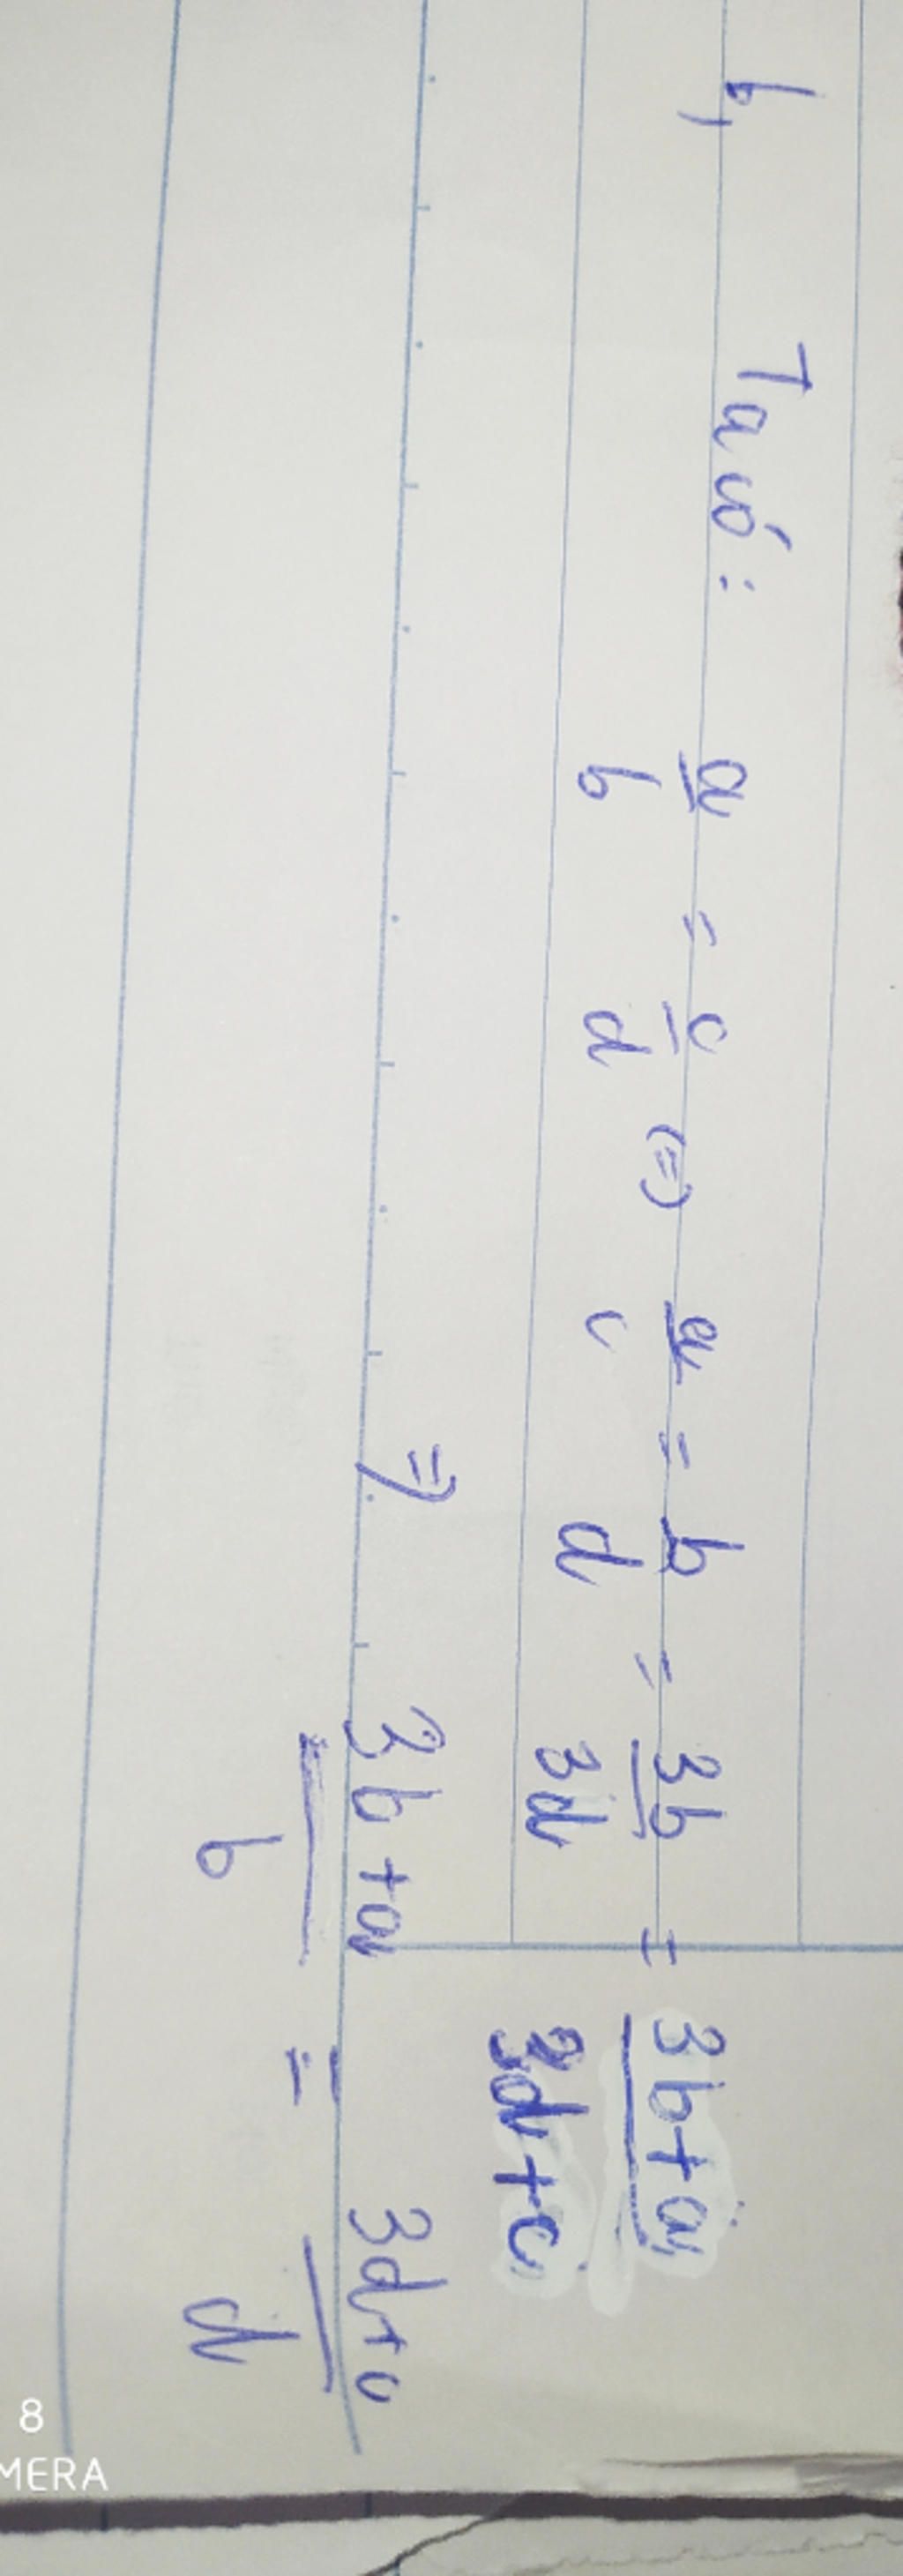 b, Ta có: a/b = c/d (=) a/c = b/d = 3b/3d = 3b+a/3d+c
=) 3b+a/b = 3d+c/d
8
MERA